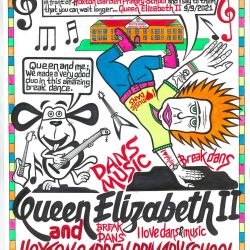 in front of Hoxton Garden Primary School and I say to them
that you can wait longer... Queen Elizabeth II 9/9/2021
Queen and me;
we made a very good
duo in this amazing
break dance.
DANS
MUSIC
Break dans
Queen Elizabeth II
and
BREAK
DANS
I love dans & music
HOXTON GARDEN PRIMARY SCHOOL